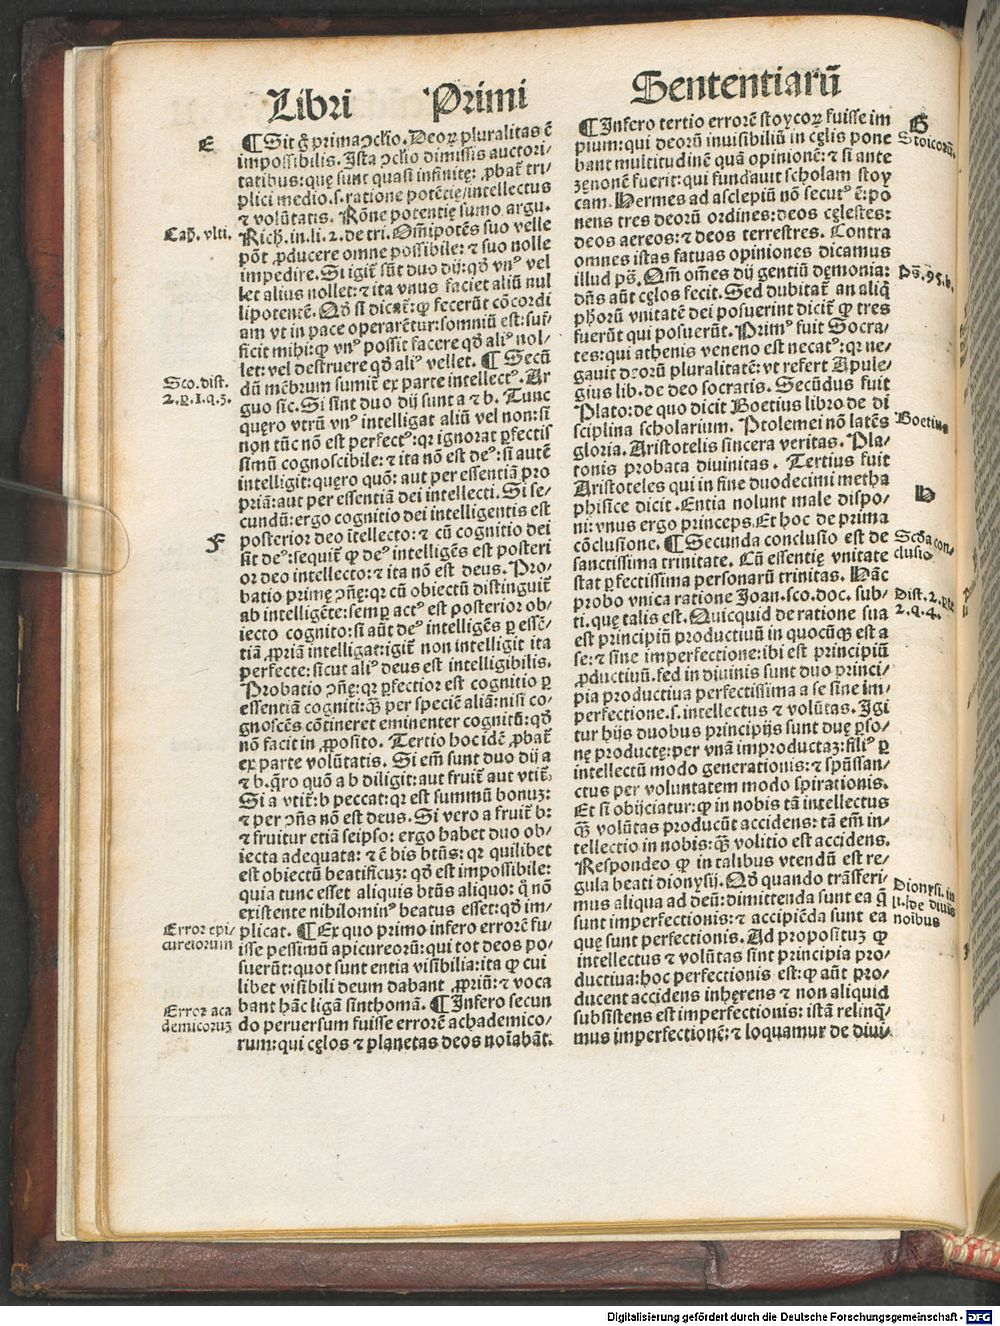 Libri Primi Sententiarū
E
¶ Sit g̊ prima ↄclo̅. Deoꝝ pluralitas ē
impossibilis. Ista ↄclo̅ dimissis auctori-
tatibus: quę sunt quasi infinitę: ꝓbat̃ tri-
plici medio .s. ratione potētię/intellectus
⁊ volūtatis. Rōne potentię sumo argu.
Cap̃. vlti.
Rich. in. li. 2. de tri. Om̄ipotēs suo velle
pōt ꝓducere omne possibile: ⁊ suo nolle
impedire. Si igit̃ sūt duo dij: qđ vnꝰ vel
let alius nollet: ⁊ ita vnus faciet aliū nul
lipotentē. Qđ si dicat̃: ꝙ fecerūt cōcordi
am vt in pace operarētur: somniū est: suf-
ficit mihi: ꝙ vnꝰ possit facere qđ aliꝰ nol-
let: vel destruere qđ aliꝰ vellet. ¶ Secū
Sco. dist.
2. p. 1. q. 3.
dū mēbrum sumit̃ ex parte intellectꝰ. Ar
guo sic. Si sint duo dij sunt a ⁊ b. Tunc
quęro vtrū vnꝰ intelligat aliū vel non: si
non tūc nō est perfectꝰ: qꝛ ignorat ꝑfectis
simū cognoscibile: ⁊ ita nō est deꝰ: si autē
intelligit: quęro quō: aut per essentiā pro
priā: aut per essentiā dei intellecti. Si se-
cundū: ergo cognitio dei intelligentis est
F
posterior deo itellecto: ⁊ cū cognitio dei
sit deꝰ: sequit̃ ꝙ deꝰ intelligēs est posteri
or deo intellecto: ⁊ ita nō est deus. Pro-
batio primę ↄn̄ę: qꝛ cū obiectū distinguit̃
ab intelligēte: semꝑ actꝰ est posterior ob-
iecto cognito: si aūt deꝰ intelligēs ꝑ essē-
tiā ꝓpriā intelligat: igit̃ non intelligit ita
perfecte: sicut aliꝰ deus est intelligibilis.
Probatio ↄn̄ę: qꝛ ꝑfectior est cognitio ꝑ
essentiā cogniti: qꝫ̄ per speciē aliā: nisi co-
gnoscēs cōtineret eminenter cognitū: qđ
nō facit in ꝓposito. Tertio hoc idē ꝓbat̃
ex parte volūtatis. Si em̄ sunt duo dij a
⁊ b. q̄ro quō a b diligit: aut fruit̃ aut vtit̃.
Si a vtit̃: b peccat: qꝛ est summū bonuꝫ:
⁊ per ↄn̄s nō est deus. Si vero a fruit̃ b:
⁊ fruitur etiā seipso: ergo habet duo ob-
iecta adequata: ⁊ ē bis bt̄us: qꝛ quilibet
est obiectū beatificuꝫ: qđ est impossibile:
quia tunc esset aliquis bt̄us aliquo: q̊ nō
existente nihilominꝰ beatus esset: qđ im-
Error epi-
cureiorum
plicat. ¶ Ex quo primo infero errorē fu-
isse pessimū apicureorū: qui tot deos po-
suerūt: quot sunt entia visibilia: ita ꝙ cui
libet visibili deum dabant ꝓpriū: ⁊ voca
Error aca
demicoruꝫ
bant hāc ligā sinthomā. ¶ Infero secun
do peruersum fuisse errorē achademico-
rum: qui cęlos ⁊ planetas deos noīabāt.
¶ Infero tertio errorē stoycoꝝ fuisse im
G
Stoicorū.
pium: qui deorū inuisibiliū in cęlis pone
bant multitudinē quā opinionē: ⁊ si ante
zenonē fuerit: qui fundauit scholam stoy
cam. Hermes ad asclepiū nō secutꝰ ē: po
nens tres deorū ordines: deos cęlestes:
deos aereos: ⁊ deos terrestres. Contra
omnes istas fatuas opiniones dicamus
Ps̄. 95. b.
illud ps̄. Om̄ om̄es dij gentiū dęmonia:
dn̄s aūt cęlos fecit. Sed dubitat̃ an aliq̄
ph̄orū vnitatē dei posuerint dicit̃ ꝙ tres
fuerūt qui posuerūt. Primꝰ fuit Socra-
tes: qui athenis veneno est necatꝰ: qꝛ ne-
gauit deorū pluralitatē: vt refert Apule-
gius lib. de deo socratis. Secūdus fuit
Boetius
Plato: de quo dicit Boetius libro de di
sciplina scholarium. Ptolemei nō latēs
gloria. Aristotelis sincera veritas. Pla-
tonis probata diuinitas. Tertius fuit
H
Aristoteles qui in fine duodecimi metha
phisice dicit. Entia nolunt male dispo-
ni: vnus ergo princeps. Et hoc de prima
Scđa con-
clusio
cōclusione. ¶ Secunda conclusio est de
sanctissima trinitate. Cū essentię vnitate
stat ꝑfectissima personarū trinitas. Hāc
Dist. 2. p̄te
2. q. 4.
probo vnica ratione Joan. sco. doc. sub-
ti. quę talis est. Quicquid de ratione sua
est principiū productiuū in quocūqꝫ est a
se: ⁊ sine imperfectione: ibi est principiū
ꝓductiuū. sed in diuinis sunt duo princi-
pia productiua perfectissima a se sine im-
perfectione. s. intellectus ⁊ volūtas. Igi
tur hijs duobus principijs sunt duę ꝑso-
nę productę: per vnā improductaꝫ: filiꝰ ꝑ
intellectū modo generationis: ⁊ spūssan-
ctus per voluntatem modo spirationis.
Et si obijciatur: ꝙ in nobis tā intellectus
qꝫ̄ volūtas producūt accidens: tā em̄ in-
tellectio in nobis: qꝫ̄ volitio est accidens.
Respondeo ꝙ in talibus vtendū est re-
Dionysi. in
li. de diuis
noibus
gula beati dionysij. Qđ quando trāsferi-
mus aliqua ad deū: dimittenda sunt ea q̄
sunt imperfectionis: ⁊ accipiēda sunt ea
quę sunt perfectionis. Ad propositum ꝙ
intellectus ⁊ volūtas sint principia pro-
ductiua: hoc perfectionis est: ꝙ aūt pro-
ducent accidens inhęrens ⁊ non aliquid
subsistens est imperfectionis: istā relinq̄-
mus imperfectionē: ⁊ loquamur de diui-
Digitalisierung gefördert durch die Deutsche Forschungsgemeinschaft - DFG